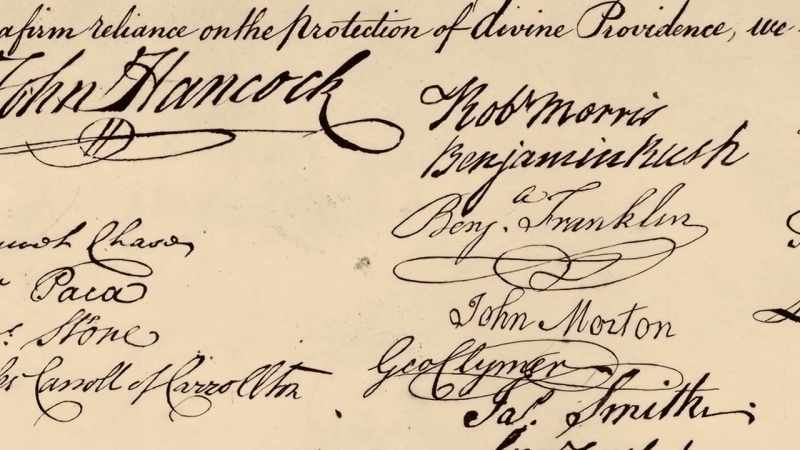 a firm reliance on the protection of divine Providence, we
John Hancock
Robt Morris
Benjamin Rush
Benja. Franklin
Chase
Paca
Stone
John Morton
Carroll of Carrollton
Geo Clymer
Jas. Smith